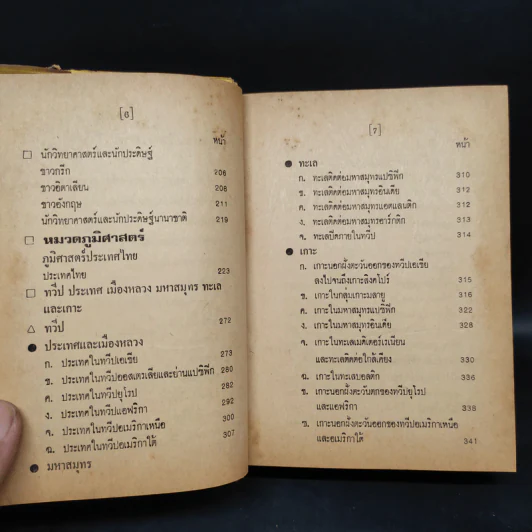 [6]
หน้า
นักวิทยาศาสตร์และนักประดิษฐ์
ชาวกรีก 206
ชาวอิตาเลียน 208
ชาวอังกฤษ 211
นักวิทยาศาสตร์และนักประดิษฐ์นานาชาติ 219
หมวดภูมิศาสตร์
ภูมิศาสตร์ประเทศไทย
ประเทศไทย 223
ทวีป ประเทศ เมืองหลวง มหาสมุทร ทะเล
และเกาะ
ทวีป 272
ประเทศและเมืองหลวง
ก. ประเทศในทวีปเอเชีย 273
ข. ประเทศในทวีปออสเตรเลียและย่านแปซิฟิก 280
ค. ประเทศในทวีปยุโรป 282
ง. ประเทศในทวีปแอฟริกา 292
จ. ประเทศในทวีปอเมริกาเหนือ 300
ฉ. ประเทศในทวีปอเมริกาใต้ 307
มหาสมุทร
[7]
หน้า
ทะเล
ก. ทะเลติดต่อมหาสมุทรแปซิฟิก 310
ข. ทะเลติดต่อมหาสมุทรอินเดีย 312
ค. ทะเลติดต่อมหาสมุทรแอตแลนติก 312
ง. ทะเลติดต่อมหาสมุทรอาร์กติก 313
จ. ทะเลปิดภายในทวีป 314
เกาะ
ก. เกาะนอกฝั่งตะวันออกของทวีปเอเชีย
ลงไปจนถึงเกาะสิงคโปร์ 315
ข. เกาะในกลุ่มเกาะมลายู 316
ค. เกาะในมหาสมุทรแปซิฟิก 322
ง. เกาะในมหาสมุทรอินเดีย 328
จ. เกาะในทะเลเมดิเตอร์เรเนียน
และทะเลติดต่อใกล้เคียง 330
ฉ. เกาะในทะเลบอลติก 336
ช. เกาะนอกฝั่งตะวันตกของทวีปยุโรป
และแอฟริกา 338
ซ. เกาะนอกฝั่งตะวันออกของทวีปอเมริกาเหนือ
และอเมริกาใต้ 341